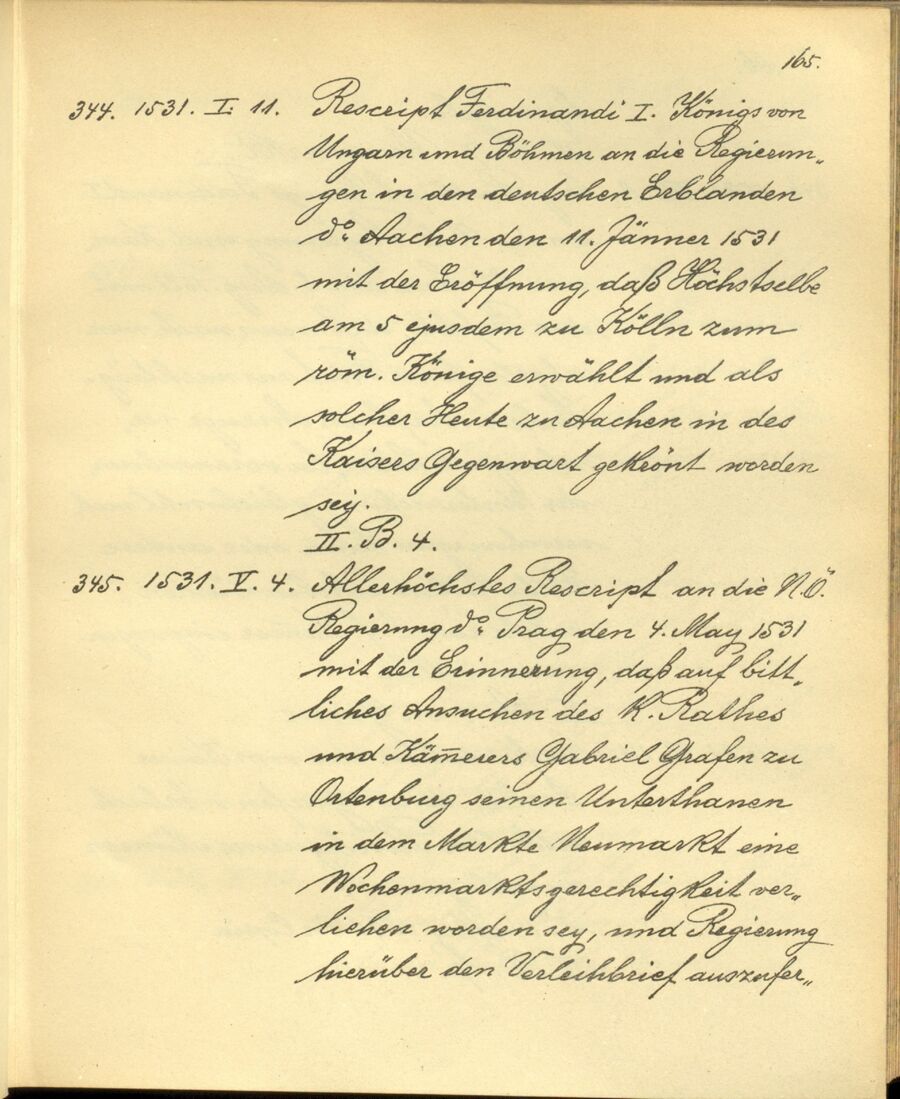 165.
344. 1531. I. 11. Rescript Ferdinandi I. Königs von
Ungarn und Böhmen an die Regierun„
gen in den deutschen Erblanden
do. Aachen den 11. Jänner 1531
mit der Eröffnung, daß Höchstselbe
am 5 ejusdem zu Kölln zum
röm. Könige erwählt und als
solcher Heute zu Aachen in des
Kaisers Gegenwart gekrönt worden
sey.
II. B. 4.
345. 1531. V. 4. Allerhöchstes Rescript an die N.Ö.
Regierung do. Prag den 4. May 1531
mit der Erinnerung, daß auf bitt„
liches Ansuchen des K. Rathes
und Käm̅erers Gabriel Grafen zu
Ortenburg seinen Unterthanen
in dem Markte Neumarkt eine
Wochenmarktsgerechtigkeit ver„
liehen worden sey, und Regierung
hierüber den Verleihbrief auszufer„